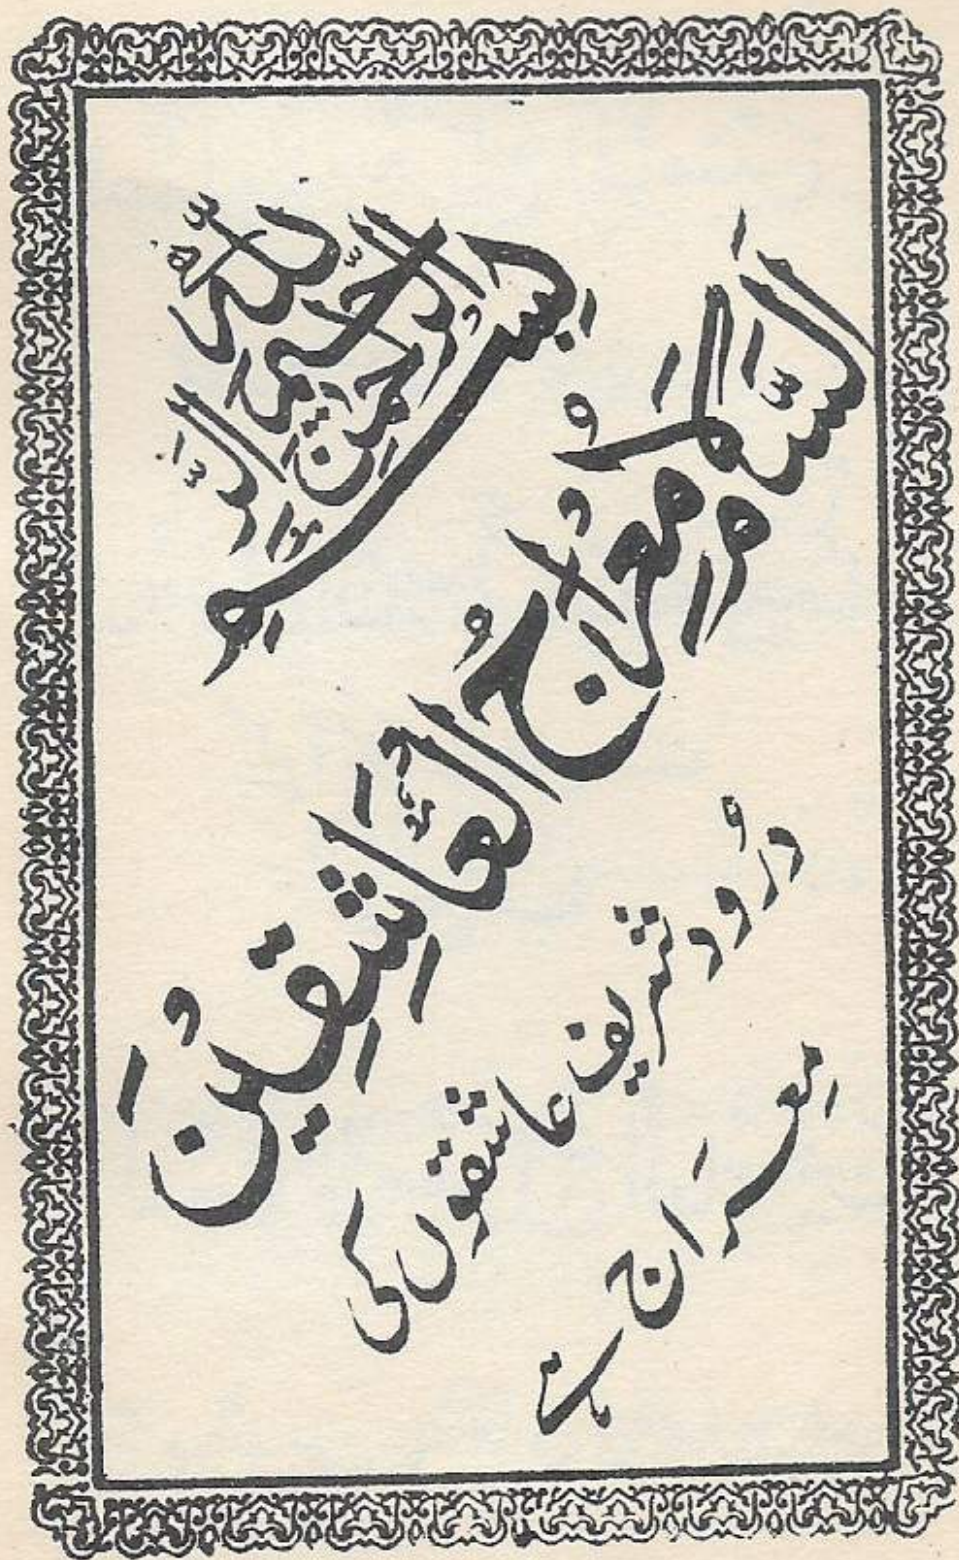 بِسْمِ اللّٰهِ الرَّحْمٰنِ الرَّحِيْمِ
اَلسَّلَامُ مِعْرَاجُ الْعَاشِقِيْنَ
دُرُود شریف عاشقوں کی
مِعَراج ہے